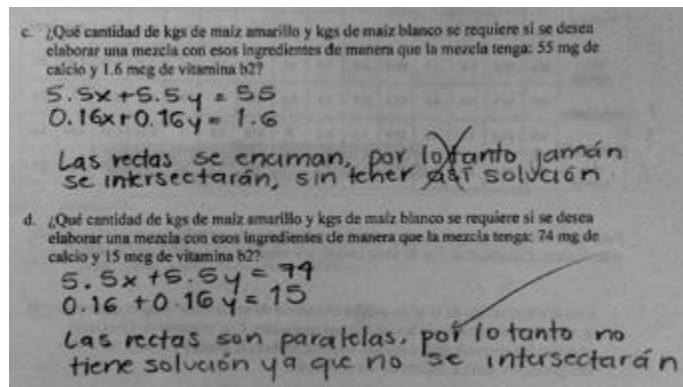 c. ¿Qué cantidad de kgs de maíz amarillo y kgs de maíz blanco se requiere si se desea
elaborar una mezcla con esos ingredientes de manera que la mezcla tenga: 55 mg de
calcio y 1.6 mcg de vitamina b2?
5.5x+5.5y = 55
0.16x+0.16y = 1.6
Las rectas se enciman, por lo tanto jamán
se intersectarán, sin tener así solución
d. ¿Qué cantidad de kgs de maíz amarillo y kgs de maíz blanco se requiere si se desea
elaborar una mezcla con esos ingredientes de manera que la mezcla tenga: 74 mg de
calcio y 15 mcg de vitamina b2?
5.5x +5.5y = 74
0.16 +0.16y = 15
Las rectas son paralelas, por lo tanto no
tiene solución ya que no se intersectarán